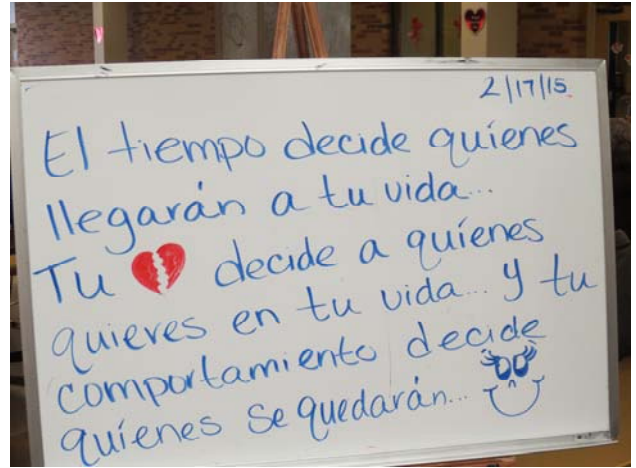 2/17/15
El tiempo decide quienes
llegarán a tu vida...
Tu decide a quiénes
quieres en tu vida... y tu
comportamiento decide
quiénes se quedarán...